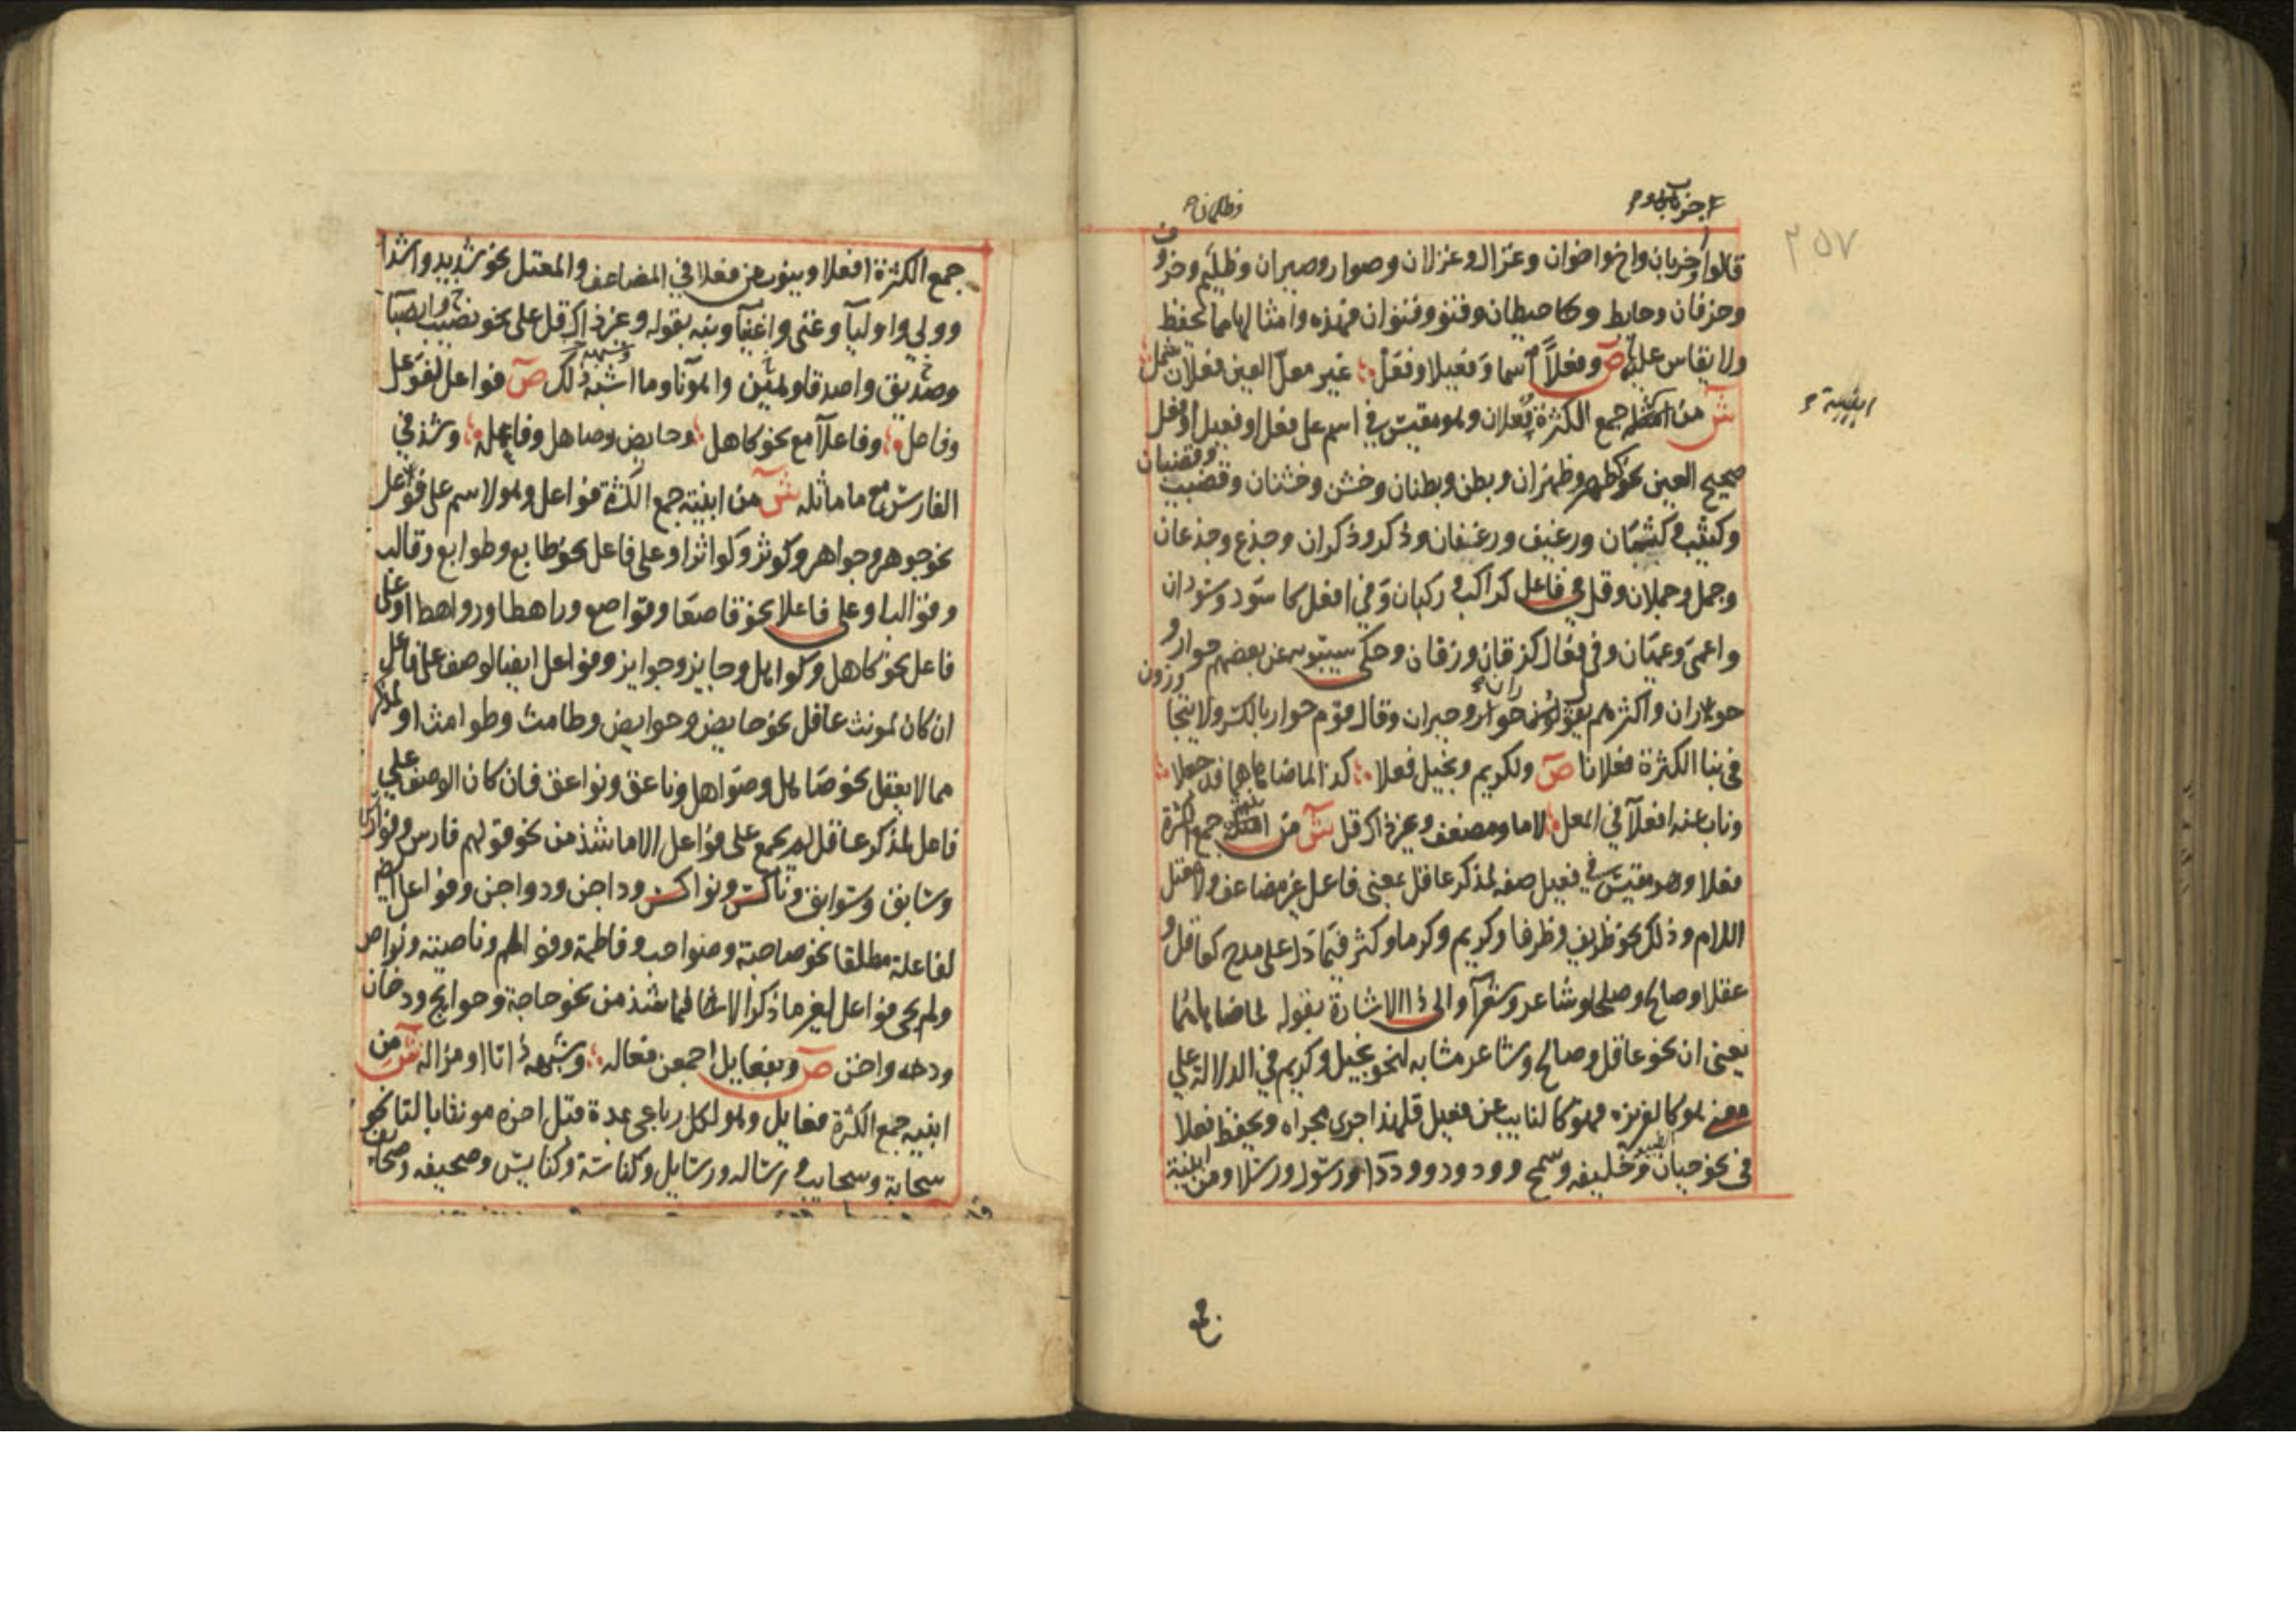 ٢٥٧
وظلمان
قالوا وخربان واخ واخوان وغزال وغزلان وصوار وصيران وظليم وخروف
وخرفان وحايط وحيطان وقنو وقنوان فهذه وامثالها مما يحفظ
ولا يقاس عليه ص وفعلا اسما وفعيلا وفعل غير معل العين فعلان شمل
ش من امثلة جمع الكثرة فعلان وهو مقيس في اسم على فعل او فعيل او فعل
ابنية
صحيح العين نحو ظهر وظهران وبطن وبطنان وخشن وخشنان وقضيب وقضبان
وكثيب وكثبان ورغيف ورغفان وذكر وذكران وجذع وجذعان
وجمل وحملان وقل في فاعل كراكب وركبان وفي افعل كاسود وسودان
واعمى وعميان وفي فعال كزقاق وزقان وحكى سيبويه عن بعضهم حوار و
حوران واكثرهم يقولون حوار وحيران وقال قوم حوار بالكسر ولا يتجاوزون
في بنا الكثرة فعلانا ص ولكريم وبخيل فعلا كذا لما ضاهاهما قد جعلا
وناب عنه افعلآ في المعل لاما ومضعف وغير ذاك قل ش من ابنية جمع الكثرة
فعلا وهو مقيس في فعيل صفه لمذكر عاقل بمعنى فاعل غير مضاعف ولا معتل
اللام وذلك نحو ظريف وظرفا وكريم وكرما وكثر فيما دل على مدح كعاقل و
عقلا وصالح وصلحا وشاعر وشعرآ والى ذا الاشارة بقوله لما ضاهاهما
يعني ان نحو عاقل وصالح وشاعر مشابه لنحو بخيل وكريم في الدلالة على
معنى هو كالغريزه فهو كالنايب عن فعيل فلهذا اجرى مجراه ويحفظ فعلا
في نحو جبان وخليفه وسمح وودود وودداا ورسول ورسلا ومن ابنية
جمع الكثرة افعلا وينوب عن فعلا في المضاعف والمعتل نحو شديد واشدا
وولي واوليآ وغني واغنيآ ونبه بقوله وغير ذاك قل على نحو نصيب وانصبآ
وصديق واصدقا وهين واهونا وما اشبه ذلك ص فواعل لفوعل
وفاعل وفاعلآ مع نحو كاهل وحايض وصاهل وفاعله وشذ في
الفارس مع ما ماثله ش من ابنية جمع الكثرة فواعل وهو لاسم على فوعل
نحو جوهر وجواهر وكوثر وكواثر او على فاعل نحو طابع وطوابع وقالب
وقوالب او على فاعلا نحو قاصعا وقواصع وراهطا ورواهط او على
فاعل نحو كاهل وكواهل وجايز وجوايز وفواعل ايضا لوصف على فاعل
ان كان لمونث عاقل نحو حايض وحوايض وطامث وطوامث او لمذكر
مما لا يعقل نحو صاهل وصواهل وناعق ونواعق فان كان الوصف على
فاعل لمذكر عاقل لم يجمع على فواعل الا ما شذ من نحو قولهم فارس وفوارس
وسابق وسوابق وناكس ونواكس وداجن ودواجن وفواعل ايضا
لفاعلة مطلقا نحو صاحبة وصواحب وفاطمة وفواطم وناصيته ونواص
ولم يجى فواعل لغير ما ذكر الا فيما شذ من نحو حاجة وحوايج ودخان
ودخنه واخن ص وبفعايل اجمعن فعاله وشبهه ذا تا او مزاله ش من
ابنيه جمع الكثرة فعايل وهو لكل رباعي بمدة قبل اخره مونثا بالتا نحو
سحابة وسحايب ورساله ورسايل وكناسة وكنايس وصحيفه وصحايف